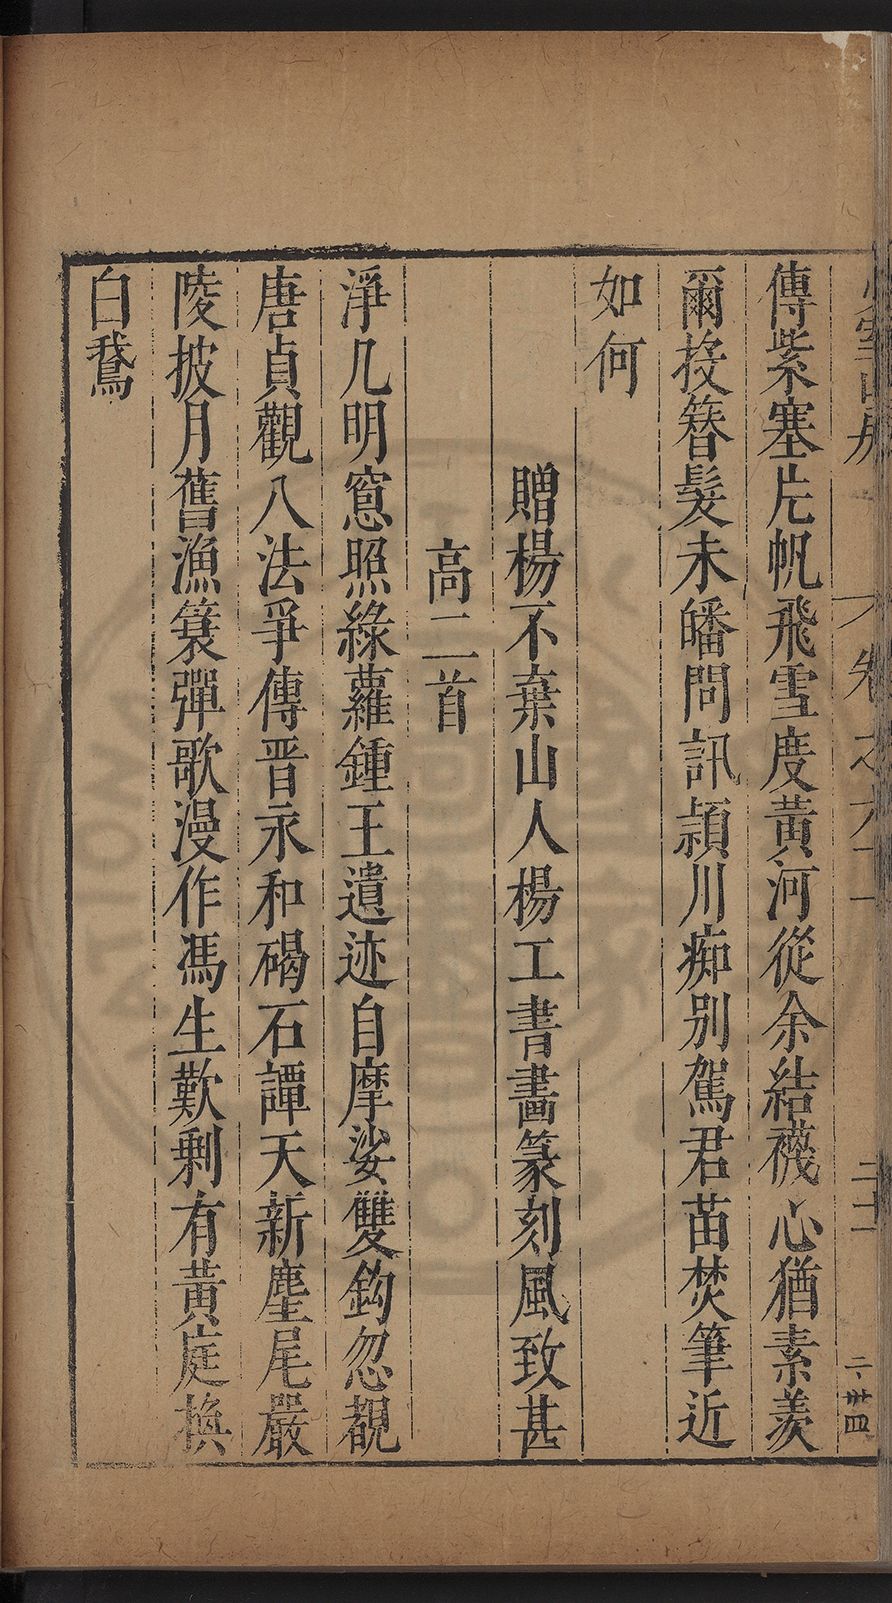 傳紫塞片帆飛雪度黃河從余結襪心猶素羨
爾投簪髮未皤問訊潁川痴別駕君苗焚筆近
如何
贈楊不棄山人楊工書畫篆刻風致甚
高二首
淨几明窻照綠蘿鍾王遺迹自摩娑雙鈎忽覩
唐貞觀八法爭傳晉永和碣石譚天新麈尾嚴
陵披月舊漁簑彈歌漫作馮生歎剩有黃庭換
白鵞